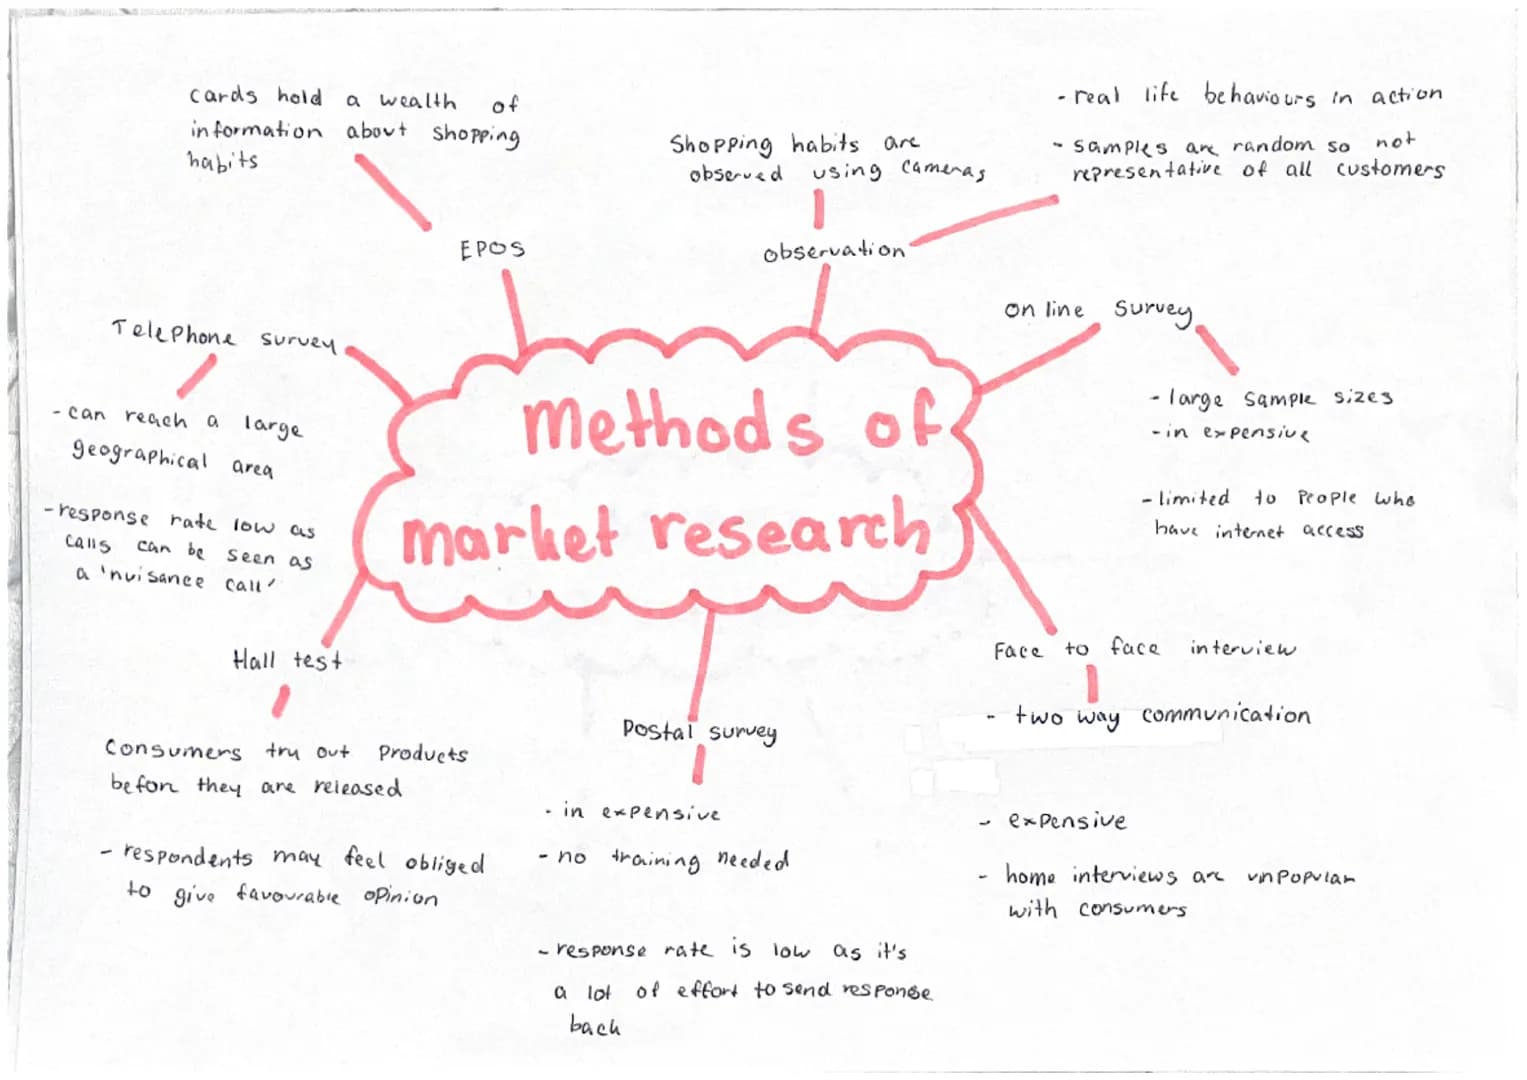 cards hold a wealth of
information about shopping
habits
EPOS
Shopping habits are
observed using cameras
observation
- real life behaviours in action
- samples are random so not
representative of all customers
on line survey
- large sample sizes
- in expensive
- limited to people who
have internet access
Telephone survey
- can reach a large
geographical area
- response rate low as
calls can be seen as
a 'nuisance call'
methods of
market research
Hall test
Consumers try out products
before they are released
- respondents may feel obliged
to give favourable opinion
Postal survey
- in expensive
- no training needed
- response rate is low as it's
a lot of effort to send response
back
Face to face interview
- two way communication
- expensive
- home interviews are unpopular
with consumers